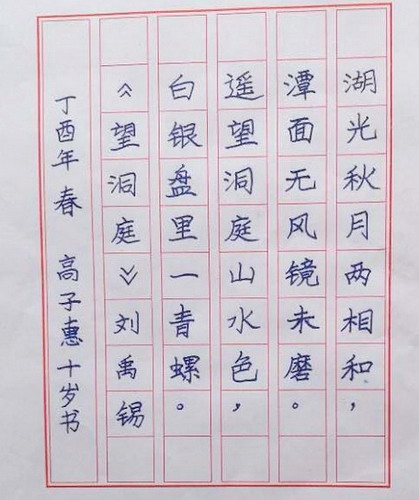 湖光秋月两相和，
潭面无风镜未磨。
遥望洞庭山水色，
白银盘里一青螺。
《望洞庭》刘禹锡
丁酉年春 高子惠十岁书